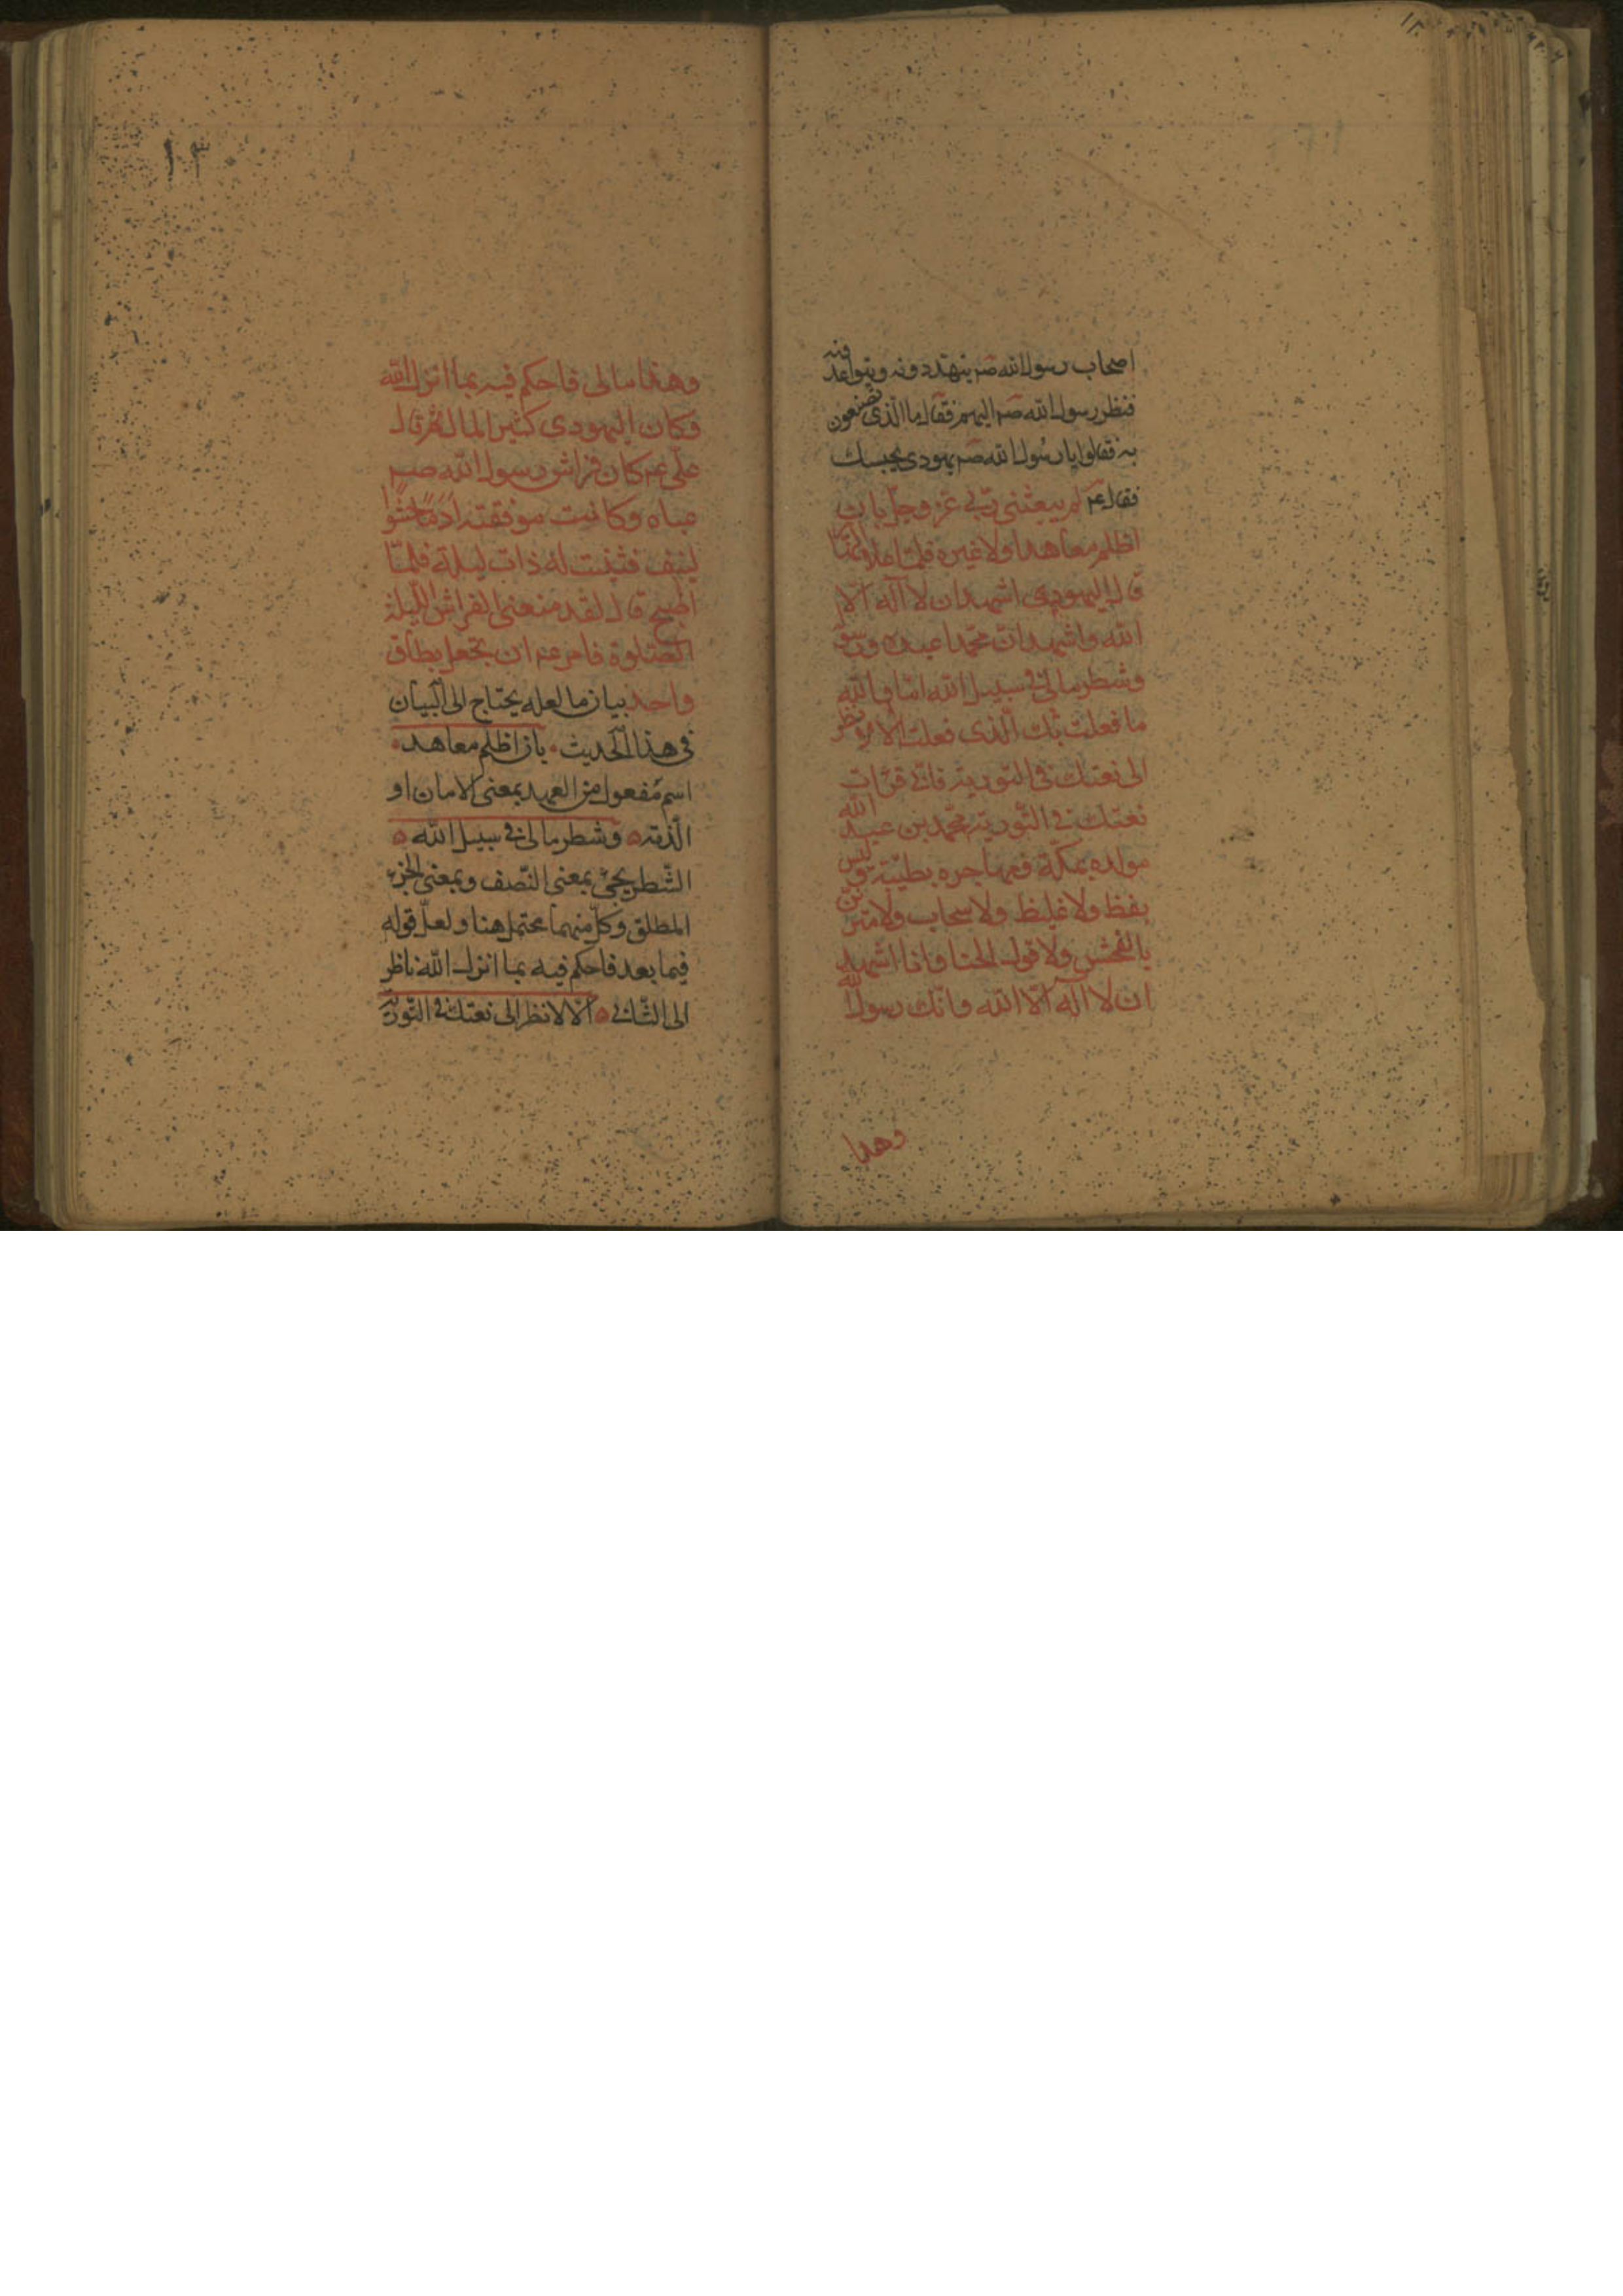 اصحاب رسول الله صم يتهددونه ويتواعدونه
فنظر رسول الله صم اليهم فقال ما الذى تصنعون
به فقالوا يا رسول الله صم يهودى يحبسك
فقال عم لم يبعثنى ربى عز وجل بان
اظلم معاهدا ولا غيره فلما علا النهار
قال اليهودى اشهد ان لا اله الا
الله واشهد ان محمدا عبده ورسوله
وشطر مالى فى سبيل الله اما والله
ما فعلت بك الذى فعلت الا لانظر
الى نعتك فى التورية فانى قرات
نعتك فى التورية محمد بن عبد الله
مولده بمكة ومهاجره بطيبة وليس
بفظ ولا غليظ ولا سخاب ولا متزين
بالفحش ولا قول الخنا وانا اشهد
ان لا اله الا الله وانك رسول الله
وهذا
وهذا مالى فاحكم فيه بما انزل الله
وكان اليهودى كثير المال ثم قال
على عم كان فراش رسول الله صم
عباه وكانت مرفقته ادم حشوها
ليف فثنيت له ذات ليلة فلما
اصبح قال لقد منعنى الفراش الليلة
الصلوة فامر عم ان يجعل بطاق
واحد بيان ما لعله يحتاج الى البيان
فى هذا الحديث بان اظلم معاهد
اسم مفعول من العهد بمعنى الامان او
الذمة وشطر مالى فى سبيل الله
الشطر يجئ بمعنى النصف وبمعنى الجزء
المطلق وكل منهما محتمل هنا ولعل قوله
فيما بعد فاحكم فيه بما انزل الله ناظر
الى الثانى الا لانظر الى نعتك فى التورية